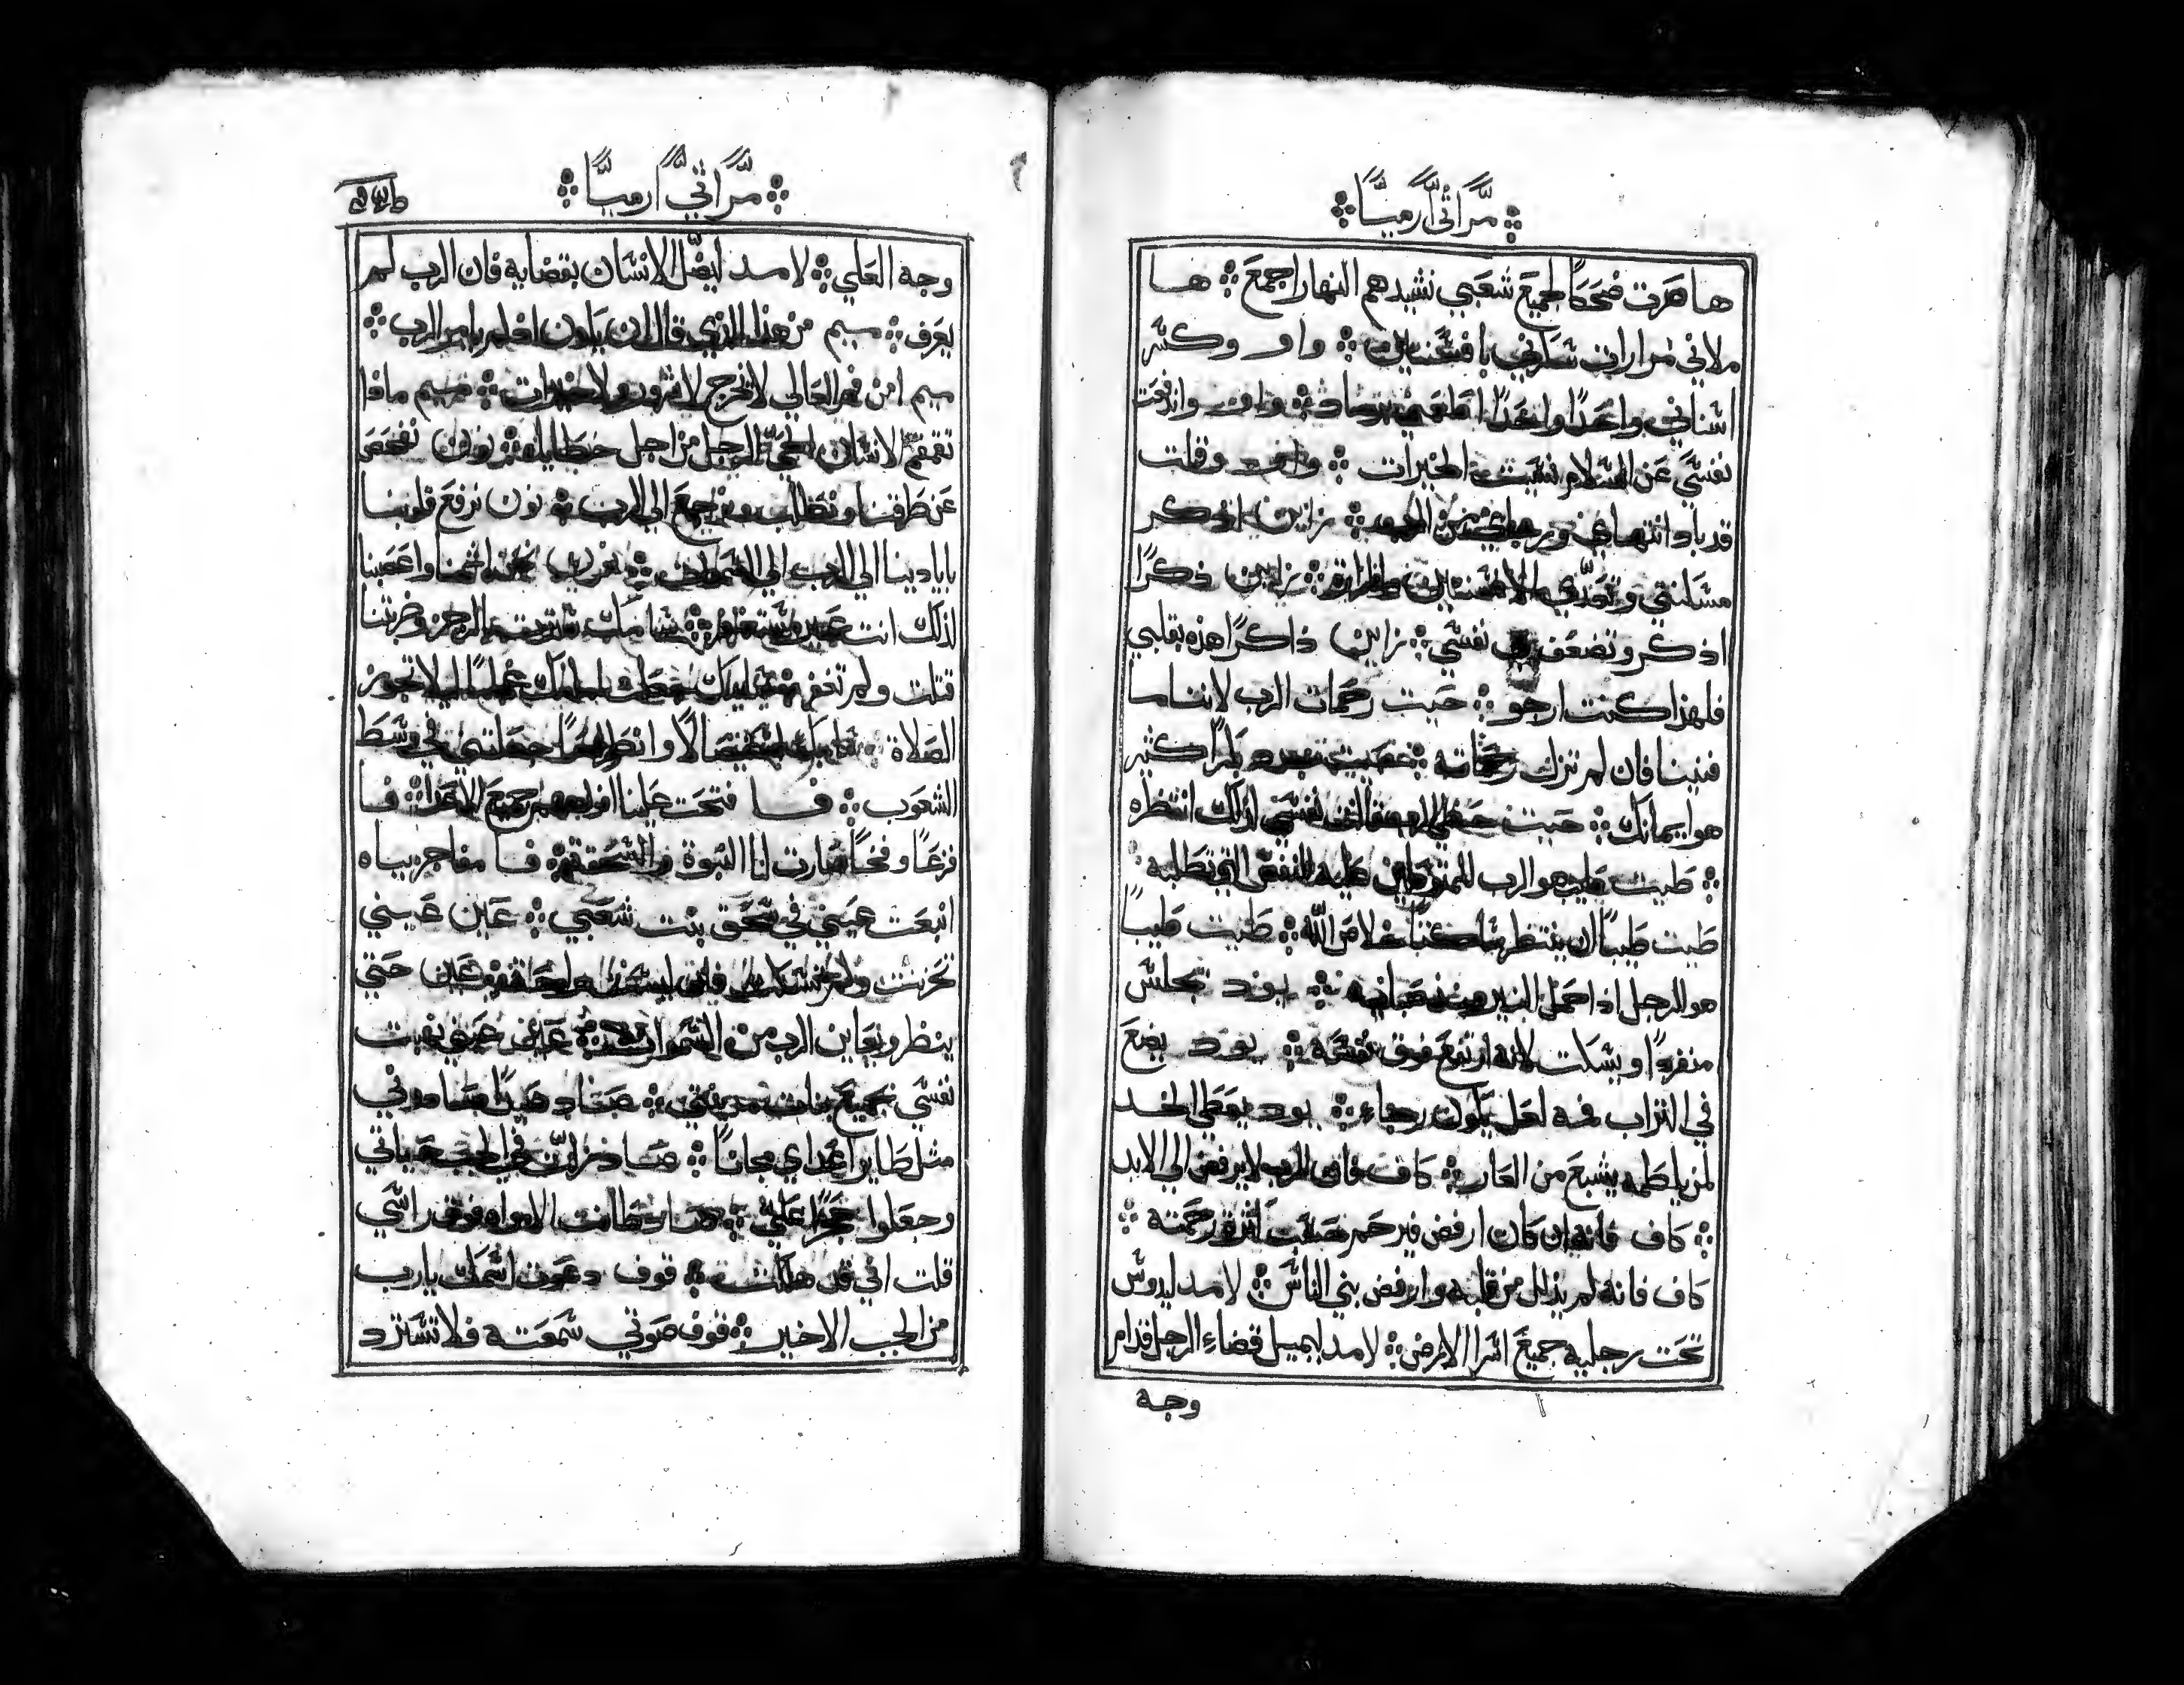 مراثي ارميا
ها صرت ضحكًا لجميع شعبي نشيدهم النهار اجمع ها
ملاني مرارات اسكرني بافسنتين واو وكسر
اسناني واحدًا واحدًا اطعمني واو واندفعت
نفسي عن السلام نسيت الخيرات واو وقلت
قد باد انتهاي ورجاي من الرب زاين اذكر
مسكنتي وتعدي الافسنتين والمرارة زاين ذكرًا
اذكر وتضعف نفسي زاين ذاكرًا هذه بقلبي
فلهذا كنت ارجو حيت رحمات الرب لاننا ما
فنينا فان لم تزل رحماته حيت كثير
هو ايمانك حيت حظي الرب قالت نفسي لذلك انتظره
طيت طيب هو الرب للمتوكلين عليه للنفس التي تطلبه
طيت طيبًا ان ينتظر ساكتًا خلاص الله طيت طيبًا
هو للرجل اذا حمل النير منذ صبايه يود يجلس
منفردًا ويسكت لانه ارتفع فوق نفسه يود يضع
في التراب فمه لعل يكون رجاء يود يعطي الخد
لمن يلطمه يشبع من العار كاف فان الرب لا يرفض الي الابد
كاف فانه ان كان ارفض فيرحم كثرة رحمته
كاف فانه لم يذلل من قلبه وارفض بني الناس لامد ليدوس
تحت رجليه جميع اسرا الارض لامد ليميل قضاء الرجل قدام
وجه
مراثي ارميا
وجه العلي لامد ليضل الانسان بقضايه فان الرب لم
يعرف ميم من هذا الذي قال ان يكون اذ لم يامر الرب
ميم امن فم العالي لا تخرج لا الشرور ولا الخيرات ميم ماذا
تقمقم الانسان الحي الرجل من اجل خطاياه نون نفحص
عن طرقنا ونطلب ونرجع الي الرب نون نرفع قلوبنا
بايادينا الي الرب الي السموات نون نحن اثمنا واغضبنا
لذلك انت سامك بالرجز وضربتنا
قتلت ولم تغفر سامك جعلت امامك ليلا تجوز
الصلاة جعلتني في وسط
الشعوب فا فتحت علينا افواههم جميع الاعدا فا
فزعًا وفخًا صارت لنا النبوة والسحق فا مفاجر مياه
انبعت عيني في سحق بنت شعبي عين عيني
تحزنت ولم تسكت عين حتي
ينظر ويعاين الرب من السموات عين عيني نهبت
نفسي جميع بنات مدينتي صاد صيدًا صادوني
مثل طاير اعداي مجانًا صاد في الجب حياتي
وجعلوا حجرًا علي صاد طافت الامواه فوق راسي
قلت اني قد هلكت قوف دعوت اسمك يارب
من الجب الاخير قوف صوتي سمعته فلا تسترد